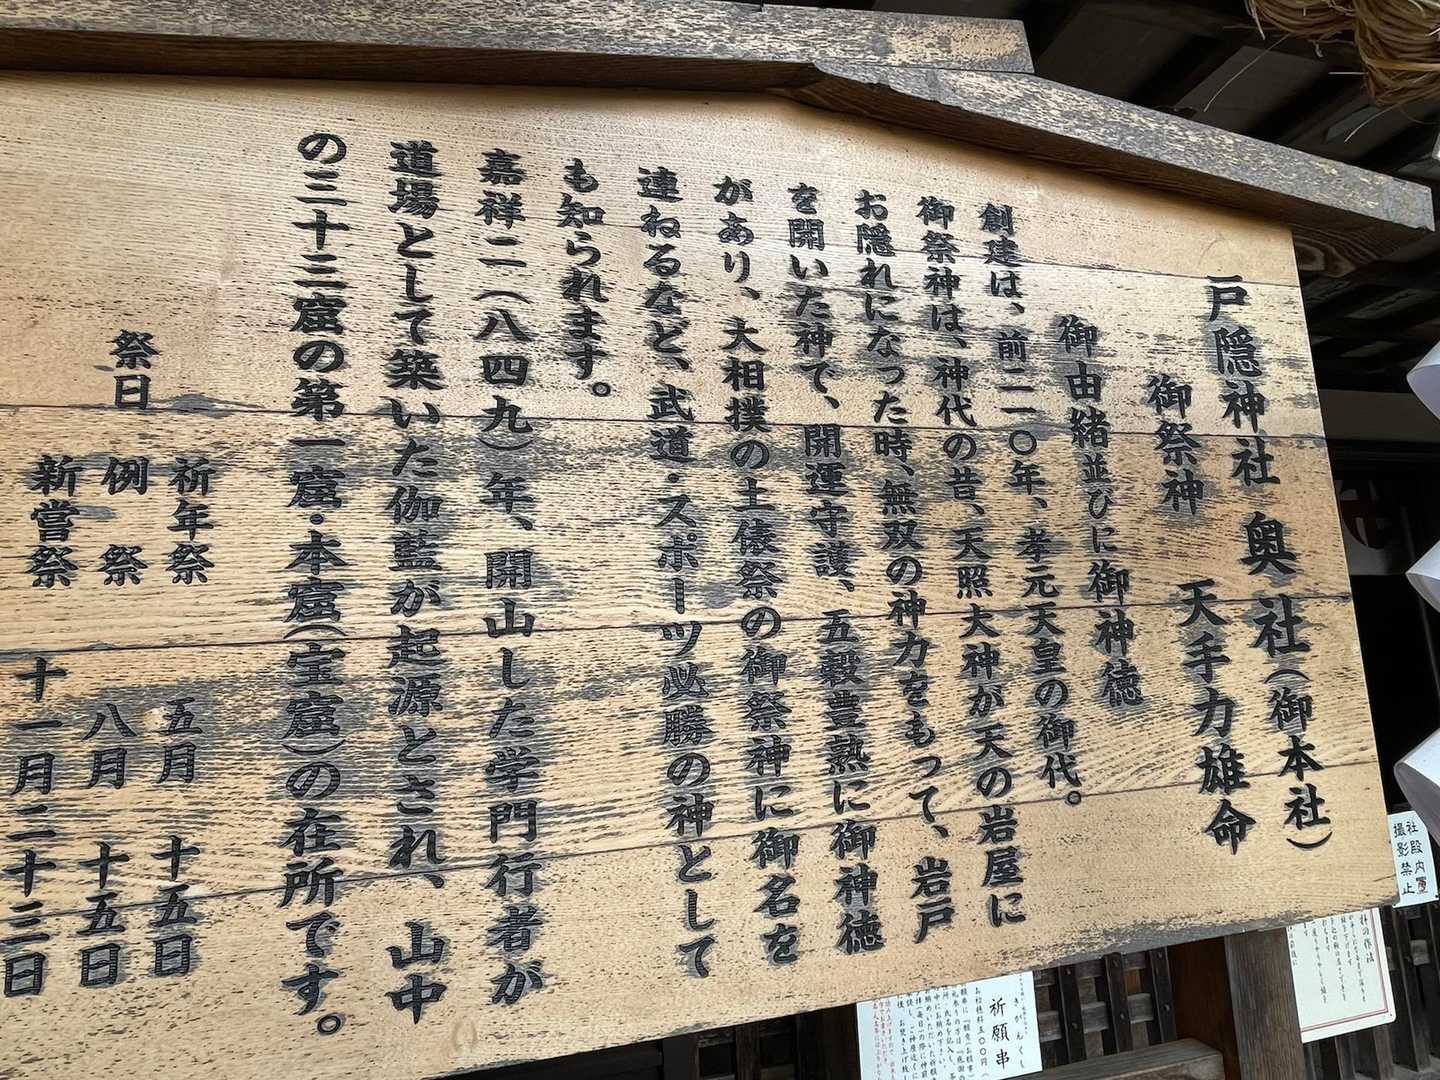 戸隠神社 奥社(御本社)
御祭神 天手力雄命
御由緒並びに御神徳
創建は、前二一〇年、孝元天皇の御代。
御祭神は、神代の昔、天照大神が天の岩屋に
お隠れになった時、無双の神力をもって、岩戸
を開いた神で、開運守護、五穀豊熟に御神徳
があり、大相撲の土俵祭の御祭神に御名を
連ねるなど、武道・スポーツ必勝の神として
も知られます。
嘉祥二(八四九)年、開山した学門行者が
道場として築いた伽藍が起源とされ、山中
の三十三窟の第一窟・本窟(宝窟)の在所です。
祈年祭 五月 十五日
祭日 例祭 八月 十五日
新嘗祭 十一月二十三日
社殿内
撮影禁止
祈願串